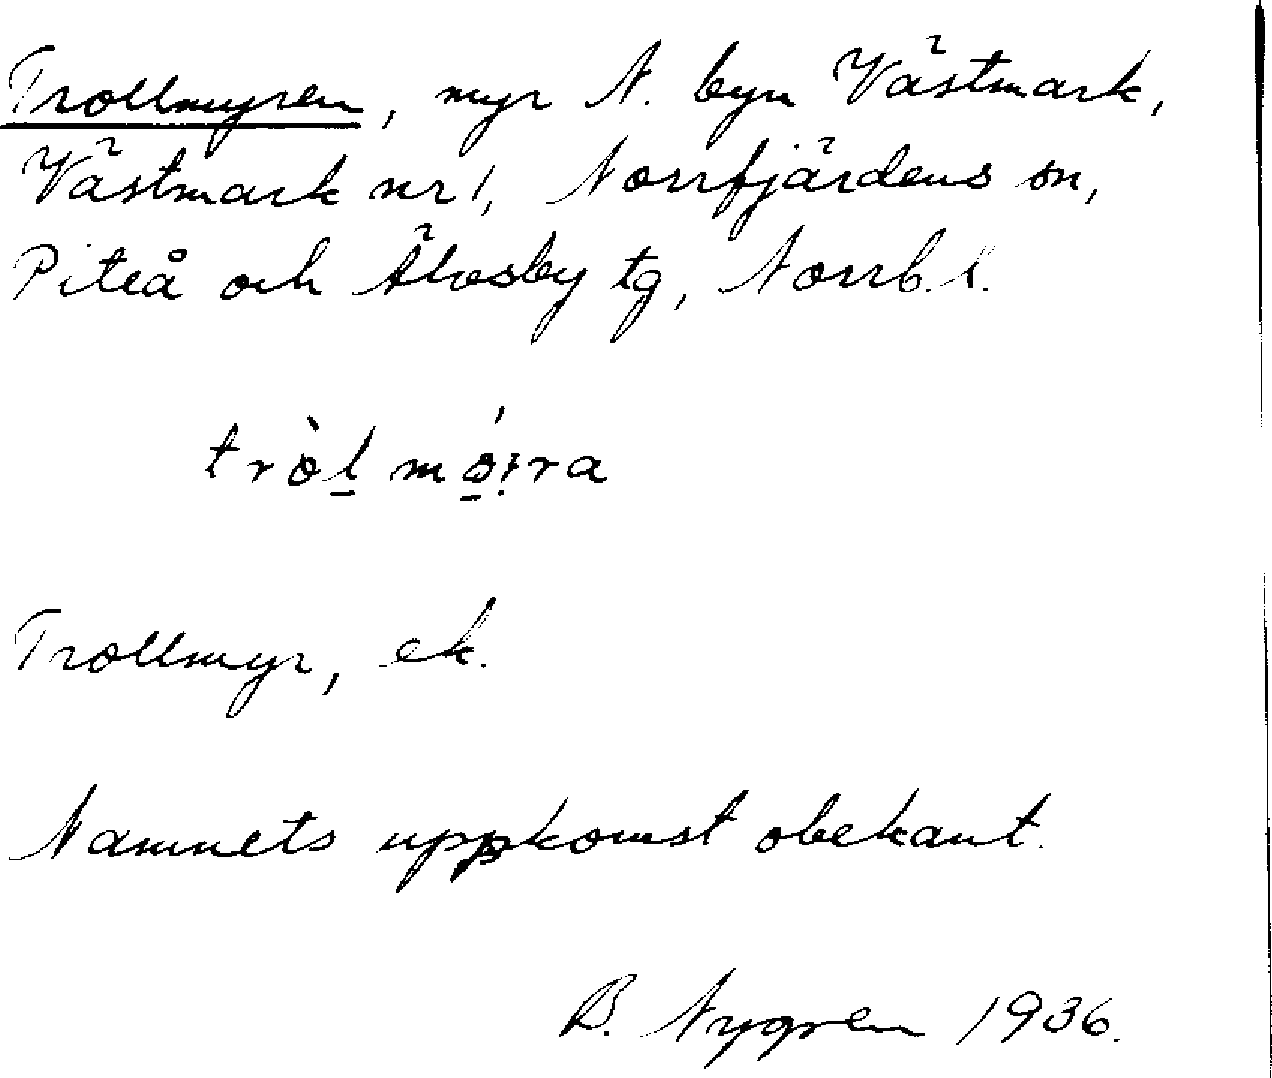 Trollmyren, myr N. byn Västmark,
Västmark nr 1, Norrfjärdens sn,
Piteå och Älvsby tg, Norrb. l.
tròl̠ mó̠ɪra
Trollmyr, ek.
Namnets uppkomst obekant.
B. Nygren 1936.